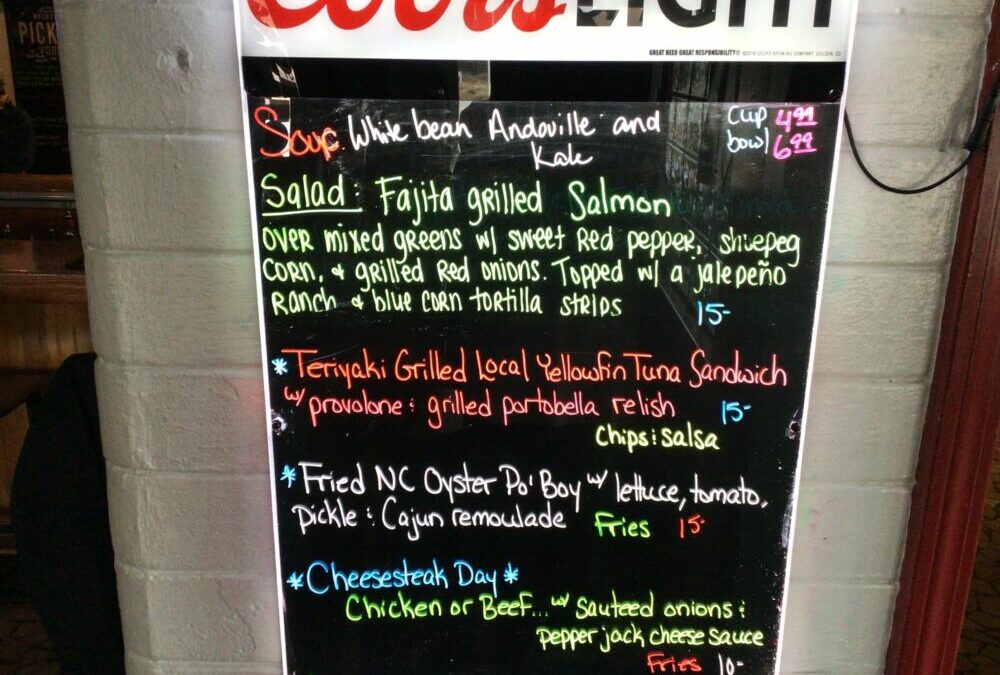 PICK
Coors LIGHT
GREAT BEER GREAT RESPONSIBILITY® ©2018 COORS BREWING COMPANY, GOLDEN, CO
Soup: White bean Andouille and cup 4.99
Kale bowl 6.99
Salad: Fajita grilled Salmon
over mixed greens w/ sweet Red pepper, shoepeg
corn, & grilled Red onions. Topped w/ a jalepeño
Ranch & blue corn tortilla strips 15-
*Teriyaki Grilled Local Yellowfin Tuna Sandwich
w/ provolone & grilled portobella relish 15-
Chips & Salsa
*Fried NC Oyster Po' Boy w/ lettuce, tomato,
pickle & Cajun remoulade Fries 15-
*Cheesesteak Day*
Chicken or Beef... w/ Sauteed onions &
pepper jack cheese sauce
Fries 10-